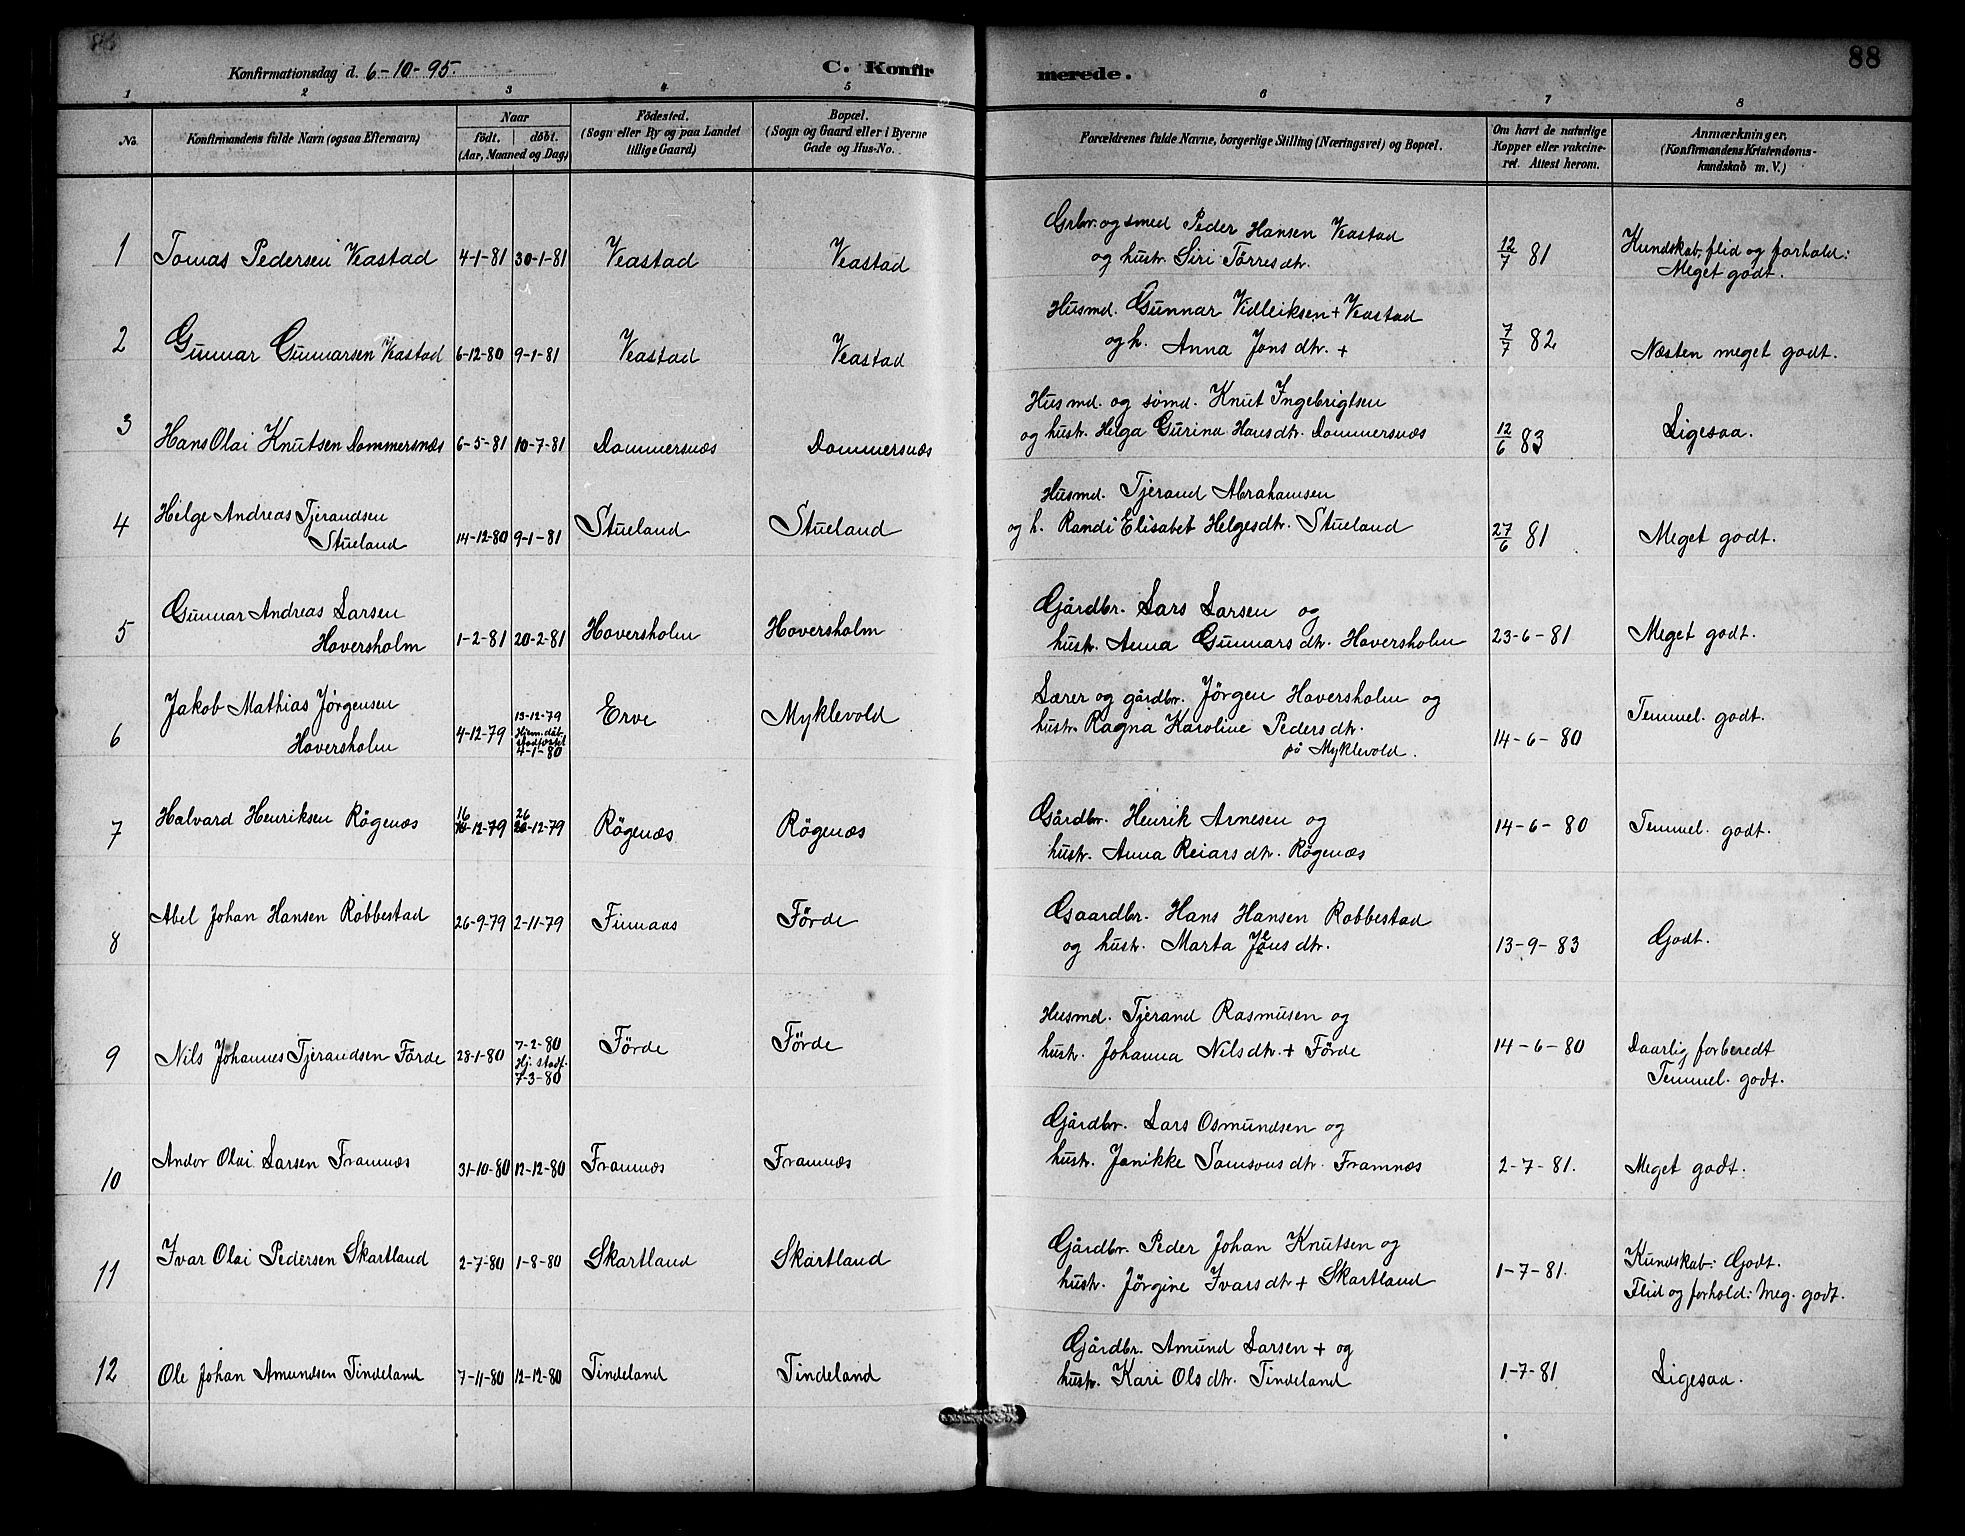 88
Konfirmationsdag d. 6-10-95. C. Konfirmerede.
1 2 3 4 5 6 7 8
No. Konfirmandens fulde Navn (ogsaa Efternavn) Naar født. døbt. (Aar, Maaned og Dag) Fødested. (Sogn eller By og paa Landet tillige Gaard) Bopæl. (Sogn og Gaard eller i Byerne Gade og Hus-No. Forældrenes fulde Navne, borgerlige Stilling (Næringsvei) og Bopæl. Om havt de naturlige Kopper eller vakcineret. Attest herom. Anmærkninger. (Konfirmandens Kristendomskundskab m. V.)
1 Tomas Pedersen Veastad 4-1-81 30-1-81 Veastad Veastad Grbr. og smed Peder Hansen Veastad 12/7 81 Kundskab, flid og forhold:
og hustr. Siri Tørresdtr. Meget godt.
2 Gunnar Gunnarsen Veastad 6-12-80 9-1-81 Veastad Veastad Husmd. Gunnar Vidleiksen + Veastad 7/7 82 Næsten meget godt.
og h. Anna Jonsdtr. +
3 Hans Olai Knutsen Dommersnæs 6-5-81 10-7-81 Dommersnæs Dommersnæs Husmd. og sømd. Knut Ingebrigtsen 12/6 83 Ligesaa.
og hustr. Helga Gurina Hansdtr. Dommersnæs
4 Helge Andreas Tjerandsen Husmd. Tjerand Abrahamsen
Stueland 14-12-80 9-1-81 Stueland Stueland og h. Randi Elisabet Helgesdtr. Stueland 27/6 81 Meget godt.
5 Gunnar Andreas Larsen Gårdbr. Lars Larsen og
Hoversholm 1-2-81 20-2-81 Hoversholm Hoversholm hustr. Anna Gunnarsdtr. Hoversholm 23-6-81 Meget godt.
6 Jakob Mathias Jørgensen 13-12-79 Erve Myklevold Lærer og gårdbr. Jørgen Hoversholm og Temmel. godt.
Hoversholm 4-12-79 Hjem. døbt stadfæstet 4-1-80 hustr. Ragna Karoline Pedersdtr. 14-6-80
på Myklevold.
7 Halvard Henriksen Røgenæs 16-12-79 26-12-79 Røgenæs Røgenæs Gårdbr. Henrik Arnesen og 14-6-80 Temmel. godt.
hustr. Anna Reiarsdtr. Røgenæs
8 Abel Johan Hansen Robbestad 26-9-79 2-11-79 Finnaas Førde Gaardbr. Hans Hansen Robbestad 13-9-83 Godt.
og hustr. Marta
9 Nils Johannes Tjerandsen Førde 28-1-80 7-2-80 Hj. stadf. 7-3-80 Førde Førde Husmd. Tjerand Rasmusen og 14-6-80 Daarlig forberedt
hustr. Johanna Nilsdtr. + Førde Temmel. godt.
10 Andor Olai Larsen Framnæs 31-10-80 12-12-80 Framnæs Framnæs Gårdbr. Lars Osmundsen og 2-7-81. Meget godt.
hustr. Janikke Samsonsdtr. Framnæs
11 Ivar Olai Pedersen Skartland 2-7-80 1-8-80 Skartland Skartland Gårdbr. Peder Johan Knutsen og 1-7-81. Kundskab: Godt.
hustr. Jørgine Ivarsdtr + Skartland Flid og forhold: Meg. godt.
12 Ole Johan Amundsen Tindeland 7-11-80 12-12-80 Tindeland Tindeland Gårdbr. Amund Larsen + og 1-7-81 Ligesaa.
hustr. Kari Olsdtr. Tindeland